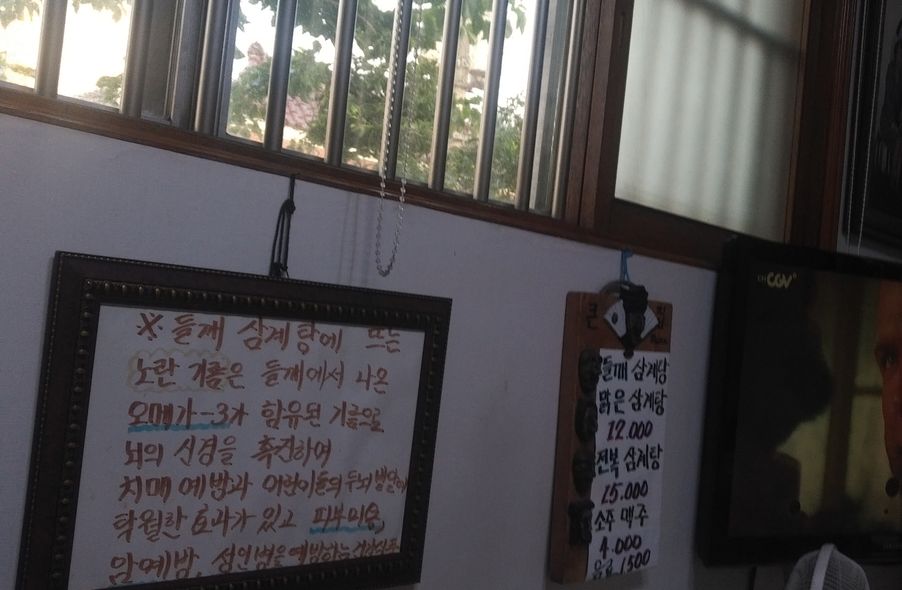 ※ 들깨 삼계탕에 뜨는
노란 기름은 들깨에서 나온
오메가-3가 함유된 기름으로
뇌의 신경을 촉진하여
치매 예방과 어린이들의 두뇌발달에
탁월한 효과가 있고 피부미용,
암예방, 성인병을 예방하는
큰 집
들깨 삼계탕
맑은 삼계탕
12.000
전복 삼계탕
15.000
소주 맥주
4.000
음료 1500
CH CGV